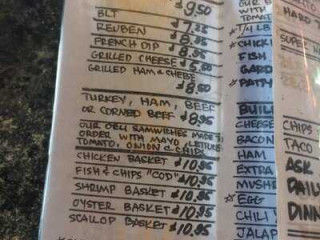 $9.50
BLT $7.25
REUBEN $8.95
FRENCH DIP $8.95
GRILLED CHEESE $5.50
GRILLED HAM & CHEESE
$8.50
TURKEY, HAM, BEEF
OR CORNED BEEF $8.95
OUR DELI SAMWICHES MADE TO
ORDER WITH MAYO, LETTUCE
TOMATO, ONION & CHIPS
CHICKEN BASKET $10.95
FISH & CHIPS "COD" $10.95
SHRIMP BASKET $10.95
OYSTER BASKET $10.95
SCALLOP BASKET $10.95
WITH
TOMAT
1/4 LB
CHICKE
FISH
GARD
PATTY
BUIL
CHEESE
BACON
HAM
EXTRA
MUSHR
EGG
CHILI
JALAP
HARD
SUPER
CHIPS
TACO
ASK
DAIL
DINN